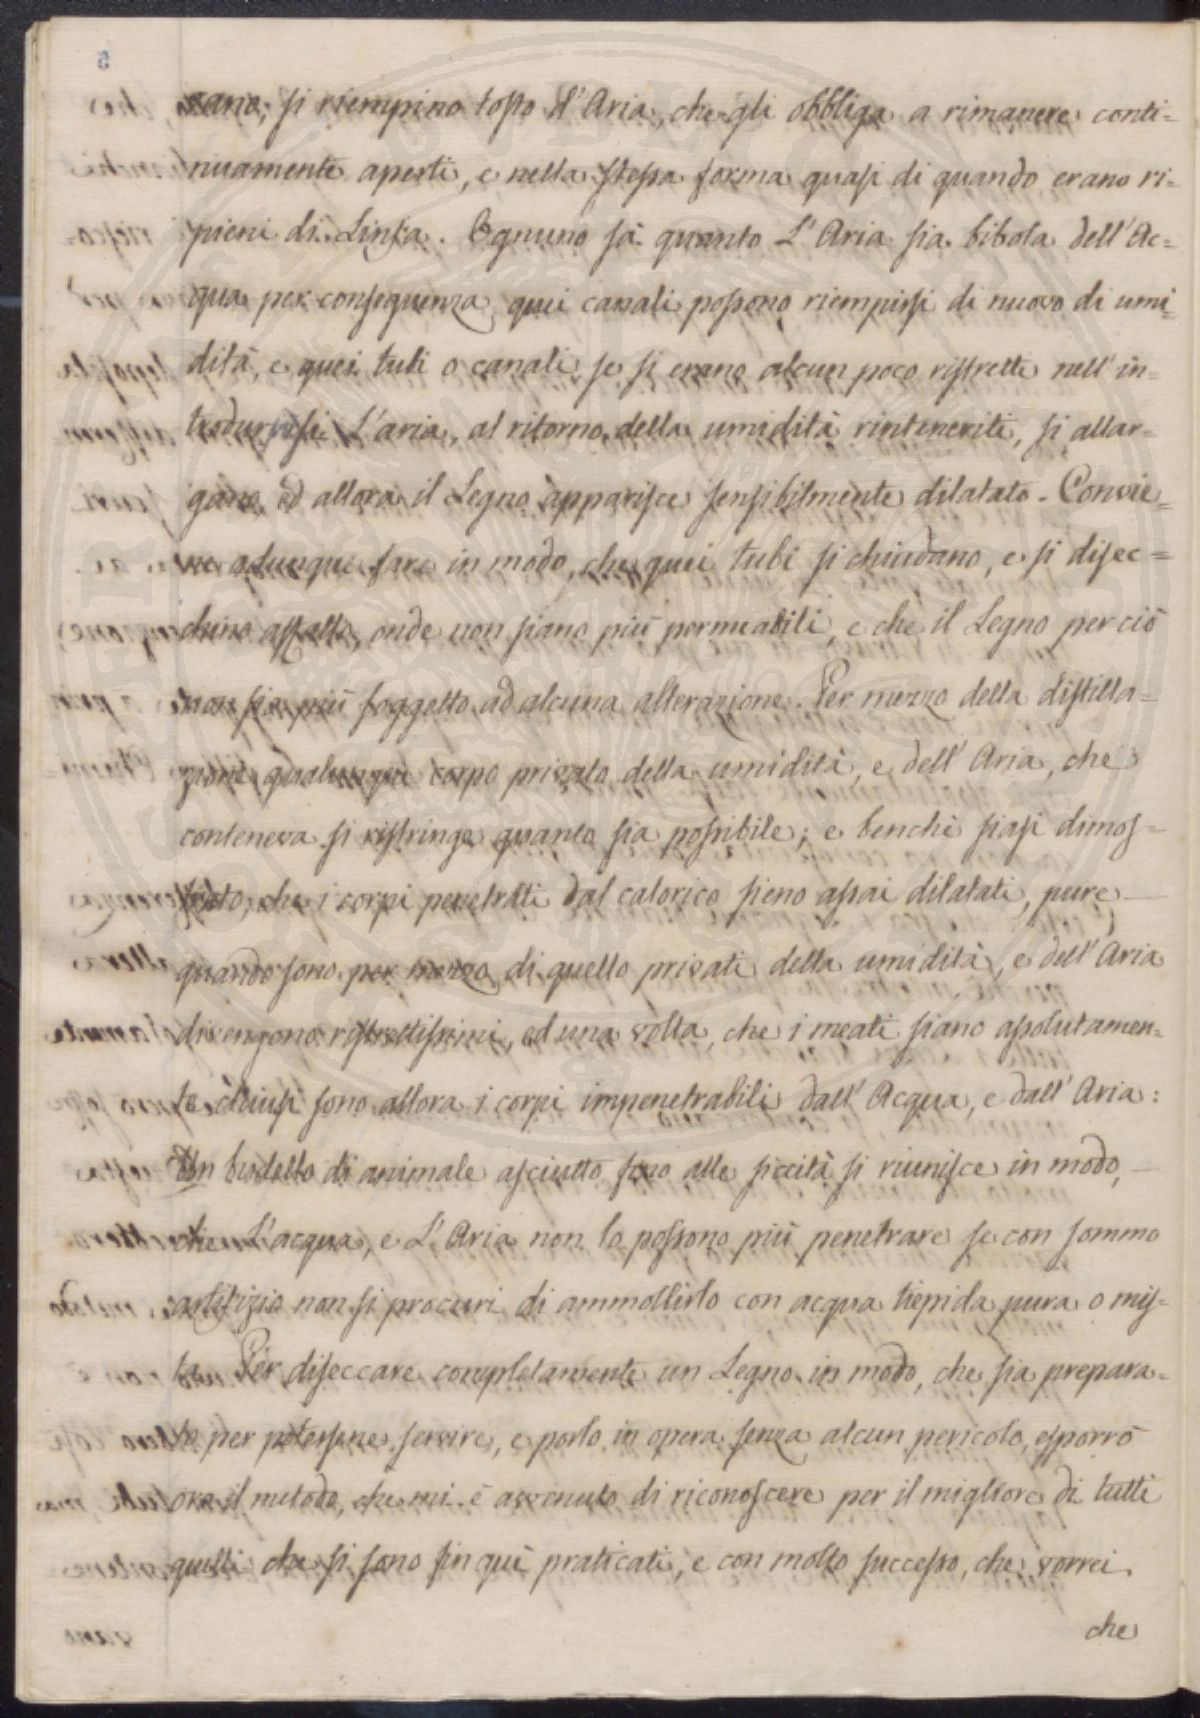 vano, si riempino tosto d'Aria, che gli obbliga a rimanere conti=
nuamente aperti, e nella stessa forma quasi di quando erano ri=
pieni di Linfa. Ognuno sà quanto L'Aria sia bibola dell'Ac=
qua per conseguenza quei canali possono riempirsi di nuovo di umi=
dità, e quei tubi o canali se si erano alcun poco ristretti nell'in=
trodurvisi L'aria, al ritorno della umidità rinteneriti, si allar=
gano, ed allora il Legno apparisce sensibilmente dilatato. Convie=
ne adunque fare in modo, che quei tubi si chiudano, e si disec=
chino affatto, onde non siano più permeabili, e che il Legno perciò
non sia più soggetto ad alcuna alterazione. Per mezzo della distilla=
zione qualunque corpo privato della umidità, e dell'Aria, che
conteneva si ristringe quanto sia possibile; e benchè siasi dimos=
trato, che i corpi penetrati dal calorico sieno assai dilatati, pure —
quando sono per mezzo di quello privati della umidità, e dell'Aria
divengono ristrettissimi, ed una volta, che i meati siano assolutamen=
te chiusi sono allora i corpi impenetrabili dall'Acqua, e dall'Aria:
Un budello di animale asciutto sino alla siccità si riunisce in modo, —
che L'acqua, e L'Aria non lo possono più penetrare se con sommo
artifizio non si procuri di ammollirlo con acqua tiepida pura o mis=
ta. Per diseccare completamente un Legno in modo, che sia prepara=
to per potersene servire, e porlo in opera senza alcun pericolo, esporrò
ora il metodo, che mi è avvenuto di riconoscere per il migliore di tutti
quelli che si sono fin quì praticati, e con molto successo, che vorrei
che